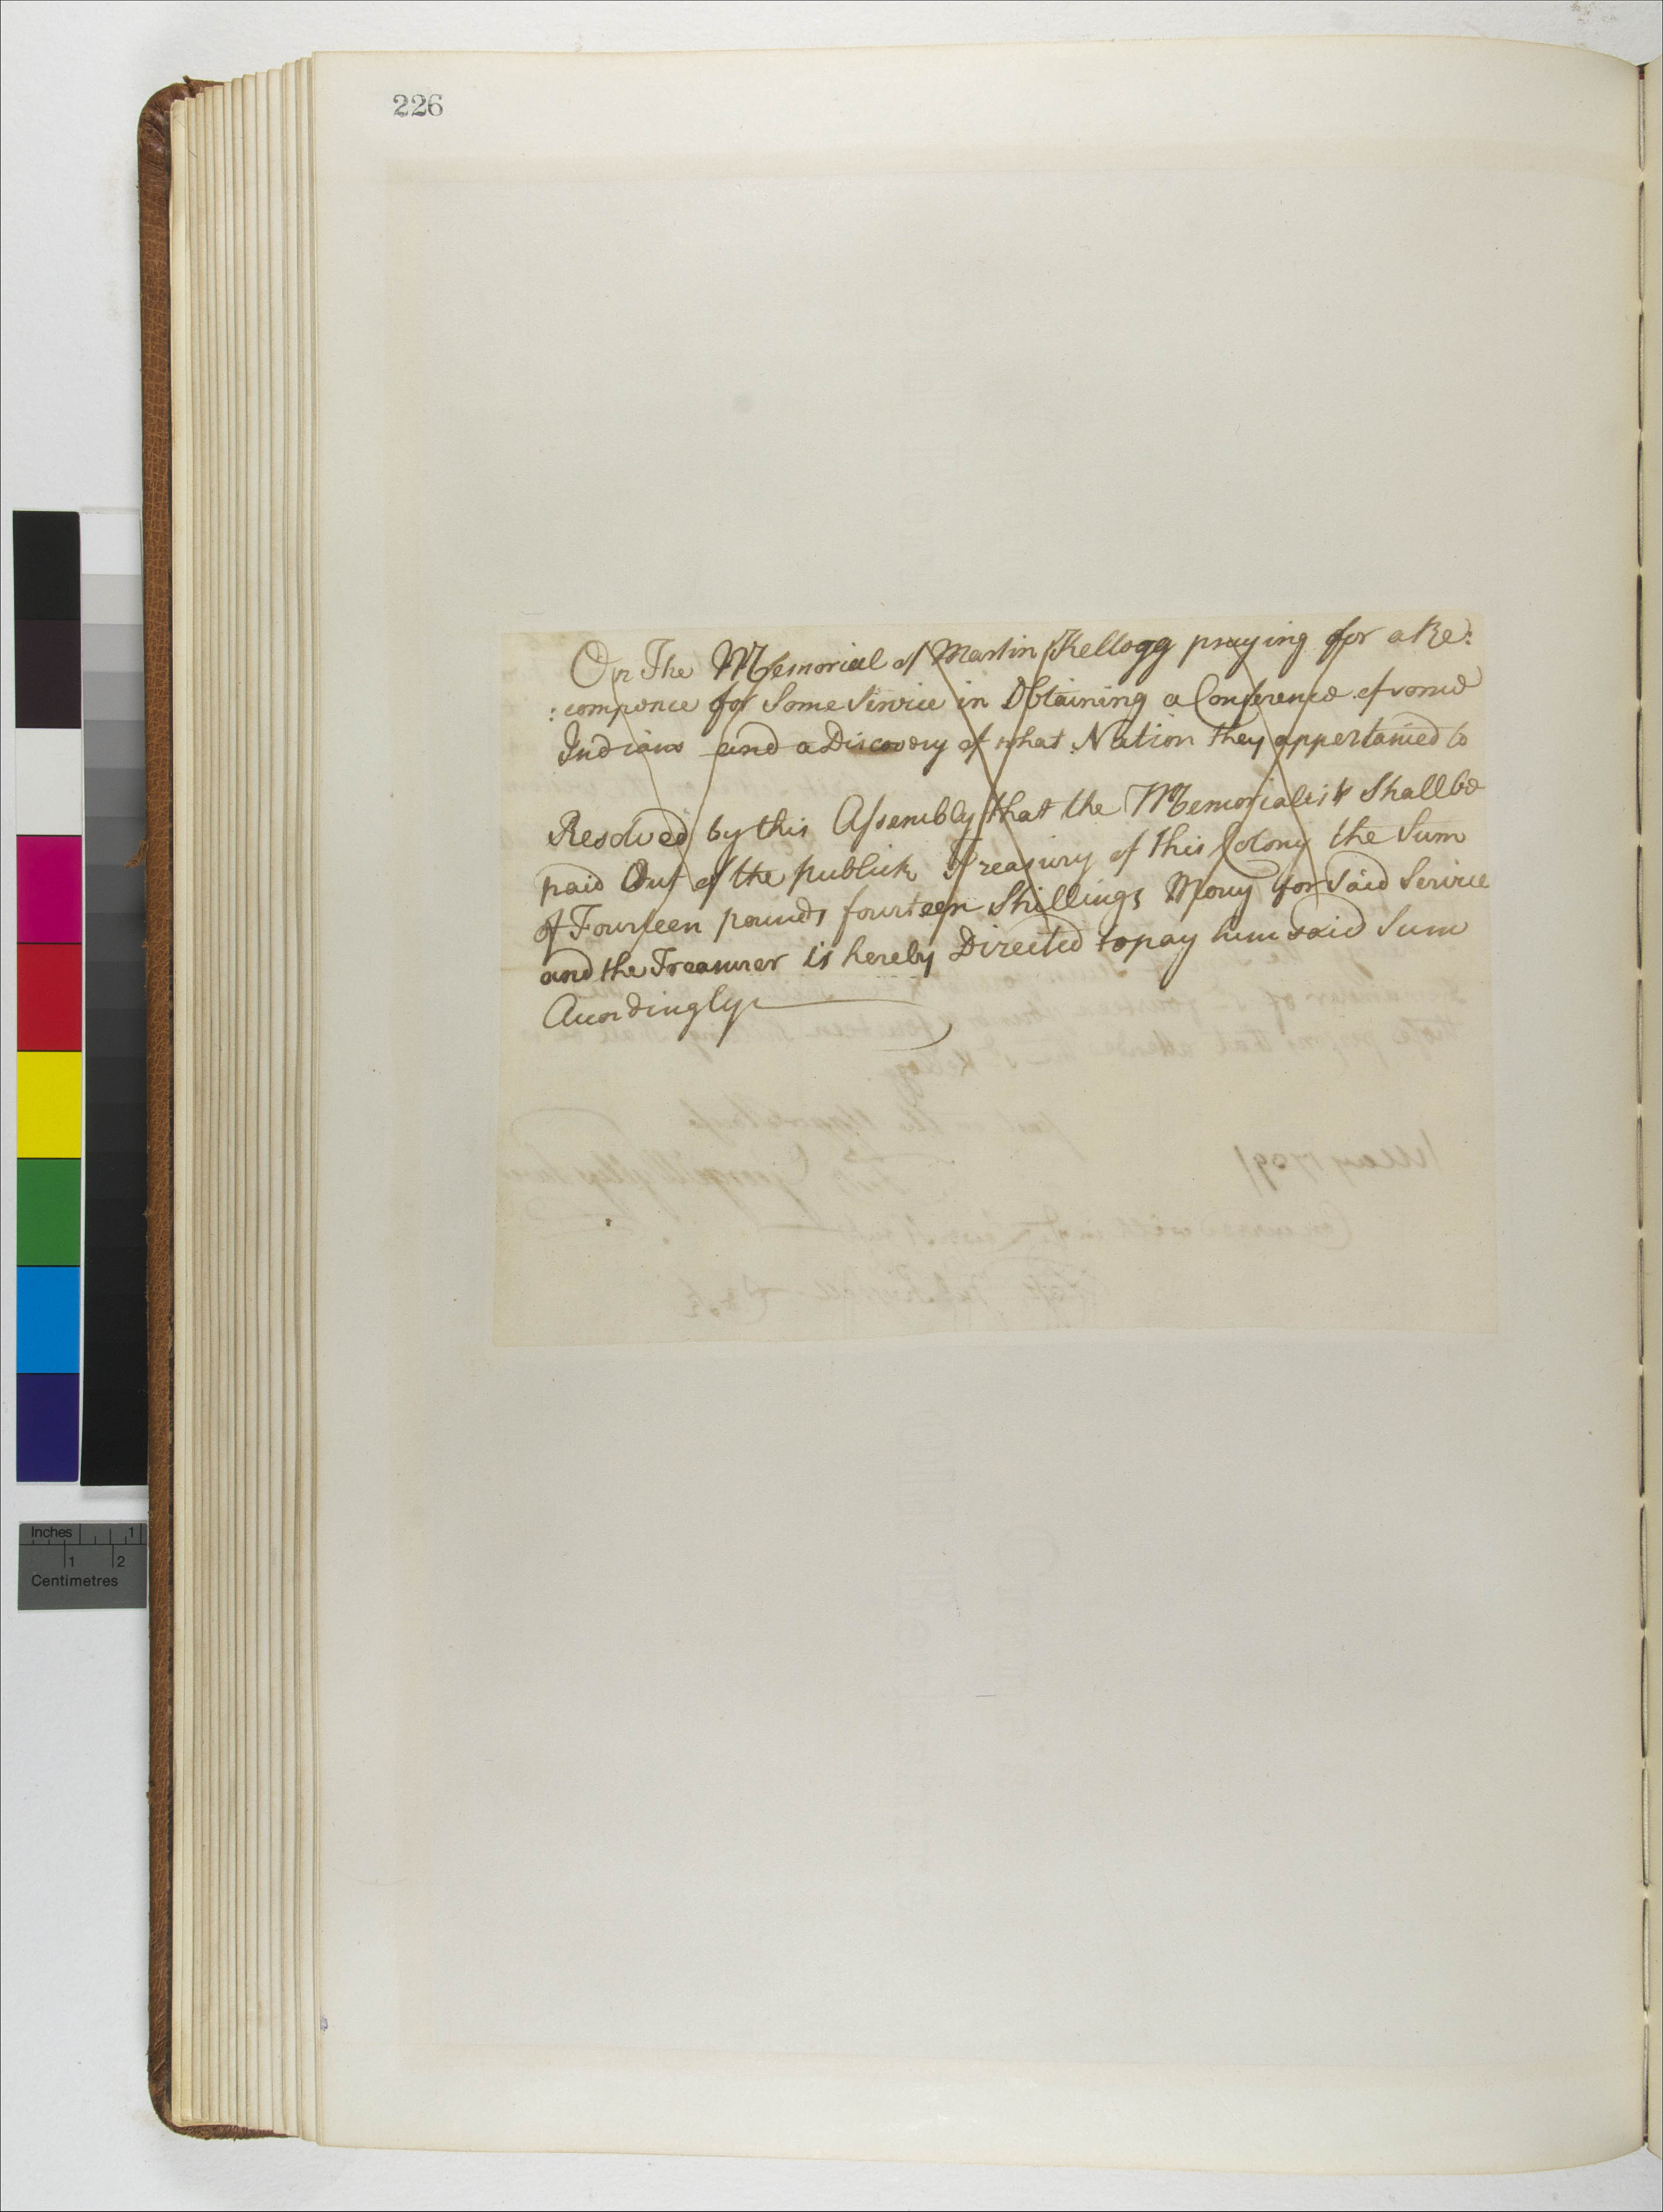 226
On The Memorial of Martin Kellogg praying for a Re:
:compence for Some Service in Obtaining a Conference of some
Indians and a Discovery of what Nation they appertained to
Resolved by this Assembly that the Memorialist Shall be
paid Out of the publick Treasury of this Colony the Sum
of Fourteen pounds fourteen Shillings Mony for Said Service
and the Treasurer is hereby Directed to pay him said Sum
Acordingly
Inches 1
1 2
Centimetres